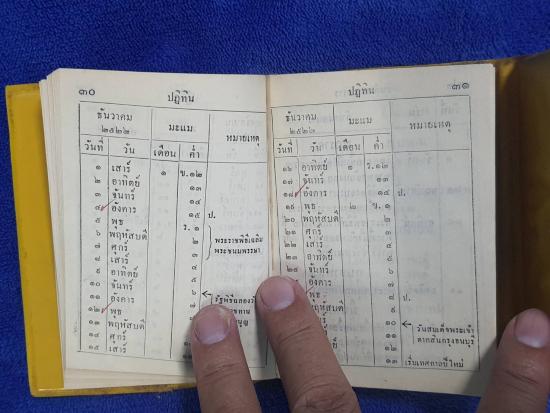 ๓๐
ปฏิทิน
ธันวาคม ๒๕๒๒
มะแม
หมายเหตุ
วันที่ วัน เดือน ค่ำ
๑ เสาร์ ๑ ข.๑๒
๒ อาทิตย์ ๑๓
๓ จันทร์ ๑๔
๔ อังคาร ๑๕ ป.
๕ พุธ ร.๑
๖ พฤหัสบดี ๒ พระราชพิธีเฉลิม
๗ ศุกร์ ๓ พระชนมพรรษา
๘ เสาร์ ๔
๙ อาทิตย์ ๕
๑๐ จันทร์ ๖
๑๑ อังคาร ๗
๑๒ พุธ
๑๓ พฤหัสบดี
๑๔ ศุกร์
๑๕ เสาร์
รัฐพิธีฉลองวัน
ปฏิทิน
๓๑
ธันวาคม ๒๕๒๒
มะแม
หมายเหตุ
วันที่ วัน เดือน ค่ำ
๑๖ อาทิตย์ ๑ ร.๑๒
๑๗ จันทร์ ๑๓
๑๘ อังคาร ๑๔ ป.
๑๙ พุธ ๒ ข.๑
๒๐ พฤหัสบดี ๒
๒๑ ศุกร์ ๓
๒๒ เสาร์ ๔
๒๓ อาทิตย์ ๕
๒๔ จันทร์ ๖
อังคาร ๗
พุธ ๘ ป.
๙
๑๐ วันสมเด็จพระเจ้า
๑๑ ตากสินกรุงธนบุรี
๑๒
๑๓ เริ่มเทศกาลปีใหม่